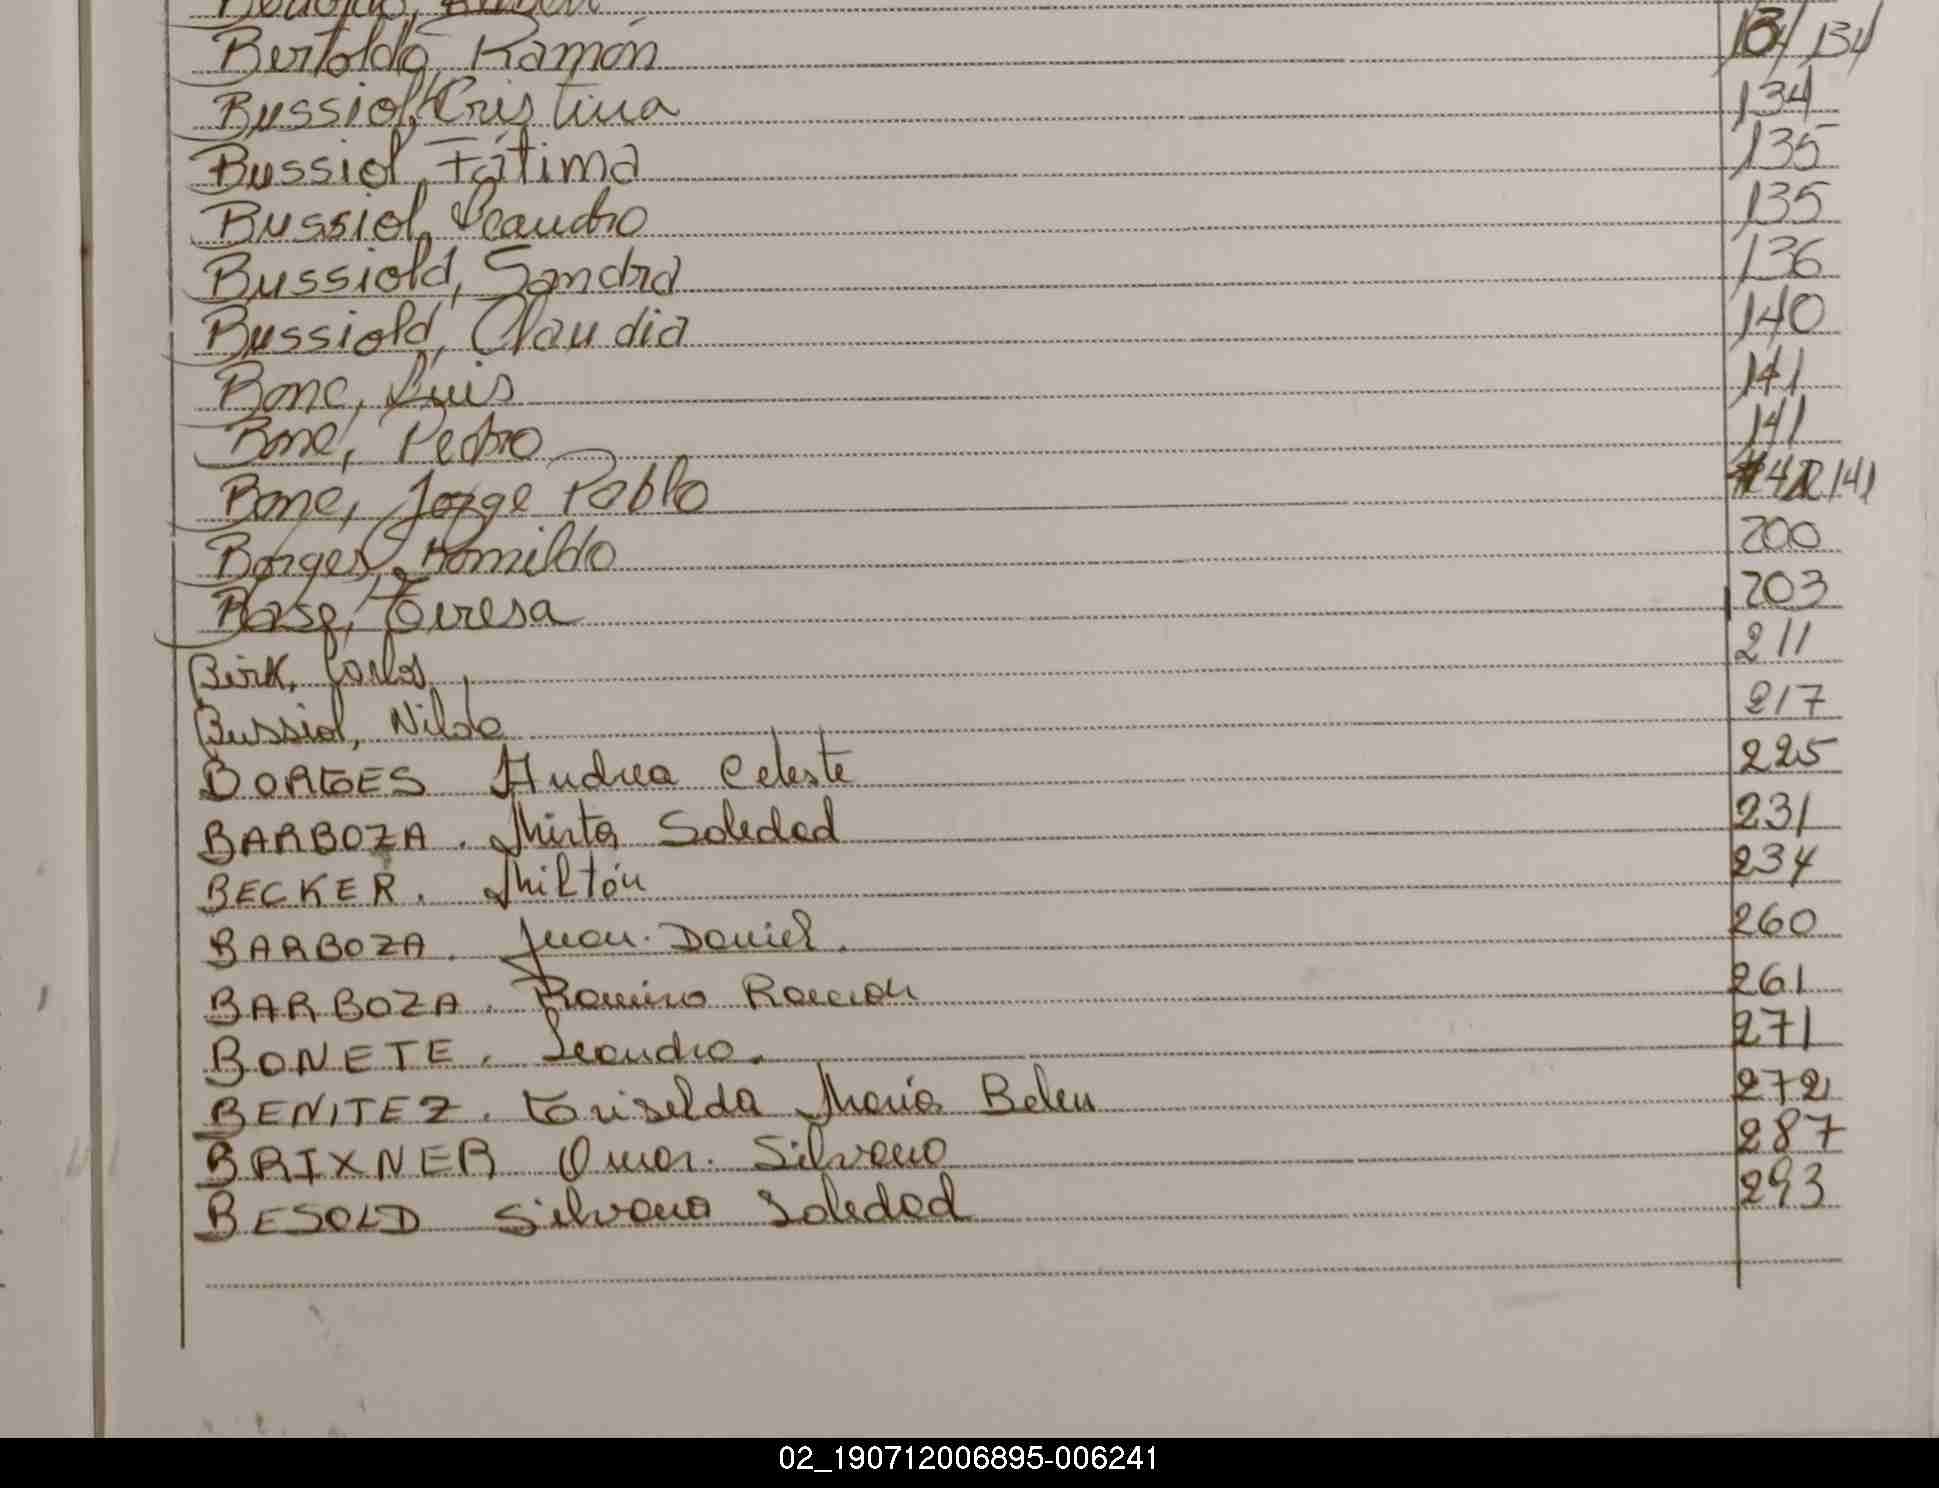 Bertoldo, Ramón 134
Bussiol, Cristina 134
Bussiol, Fátima 135
Bussiol, Leandro 135
Bussiold, Sandra 136
Bussiold, Claudia 140
Bone, Luis 141
Bone, Pedro 141
Bone, Jorge Pablo 141
Borges, Romildo 200
Base, Teresa 203
Birk, Carlos 211
Bussiol, Nilda 217
BORGES Andrea Celeste 225
BARBOZA. Mirta Soledad 231
BECKER. Miltón 234
BARBOZA. Juan. Daniel. 260
BARBOZA. Ramiro Ramon 261
BONETE. Leandro. 271
BENITEZ. Griselda María Belen 272
BRIXNER Omar. Silvano 287
BESOLD Silvana Soledad 293
02_190712006895-006241